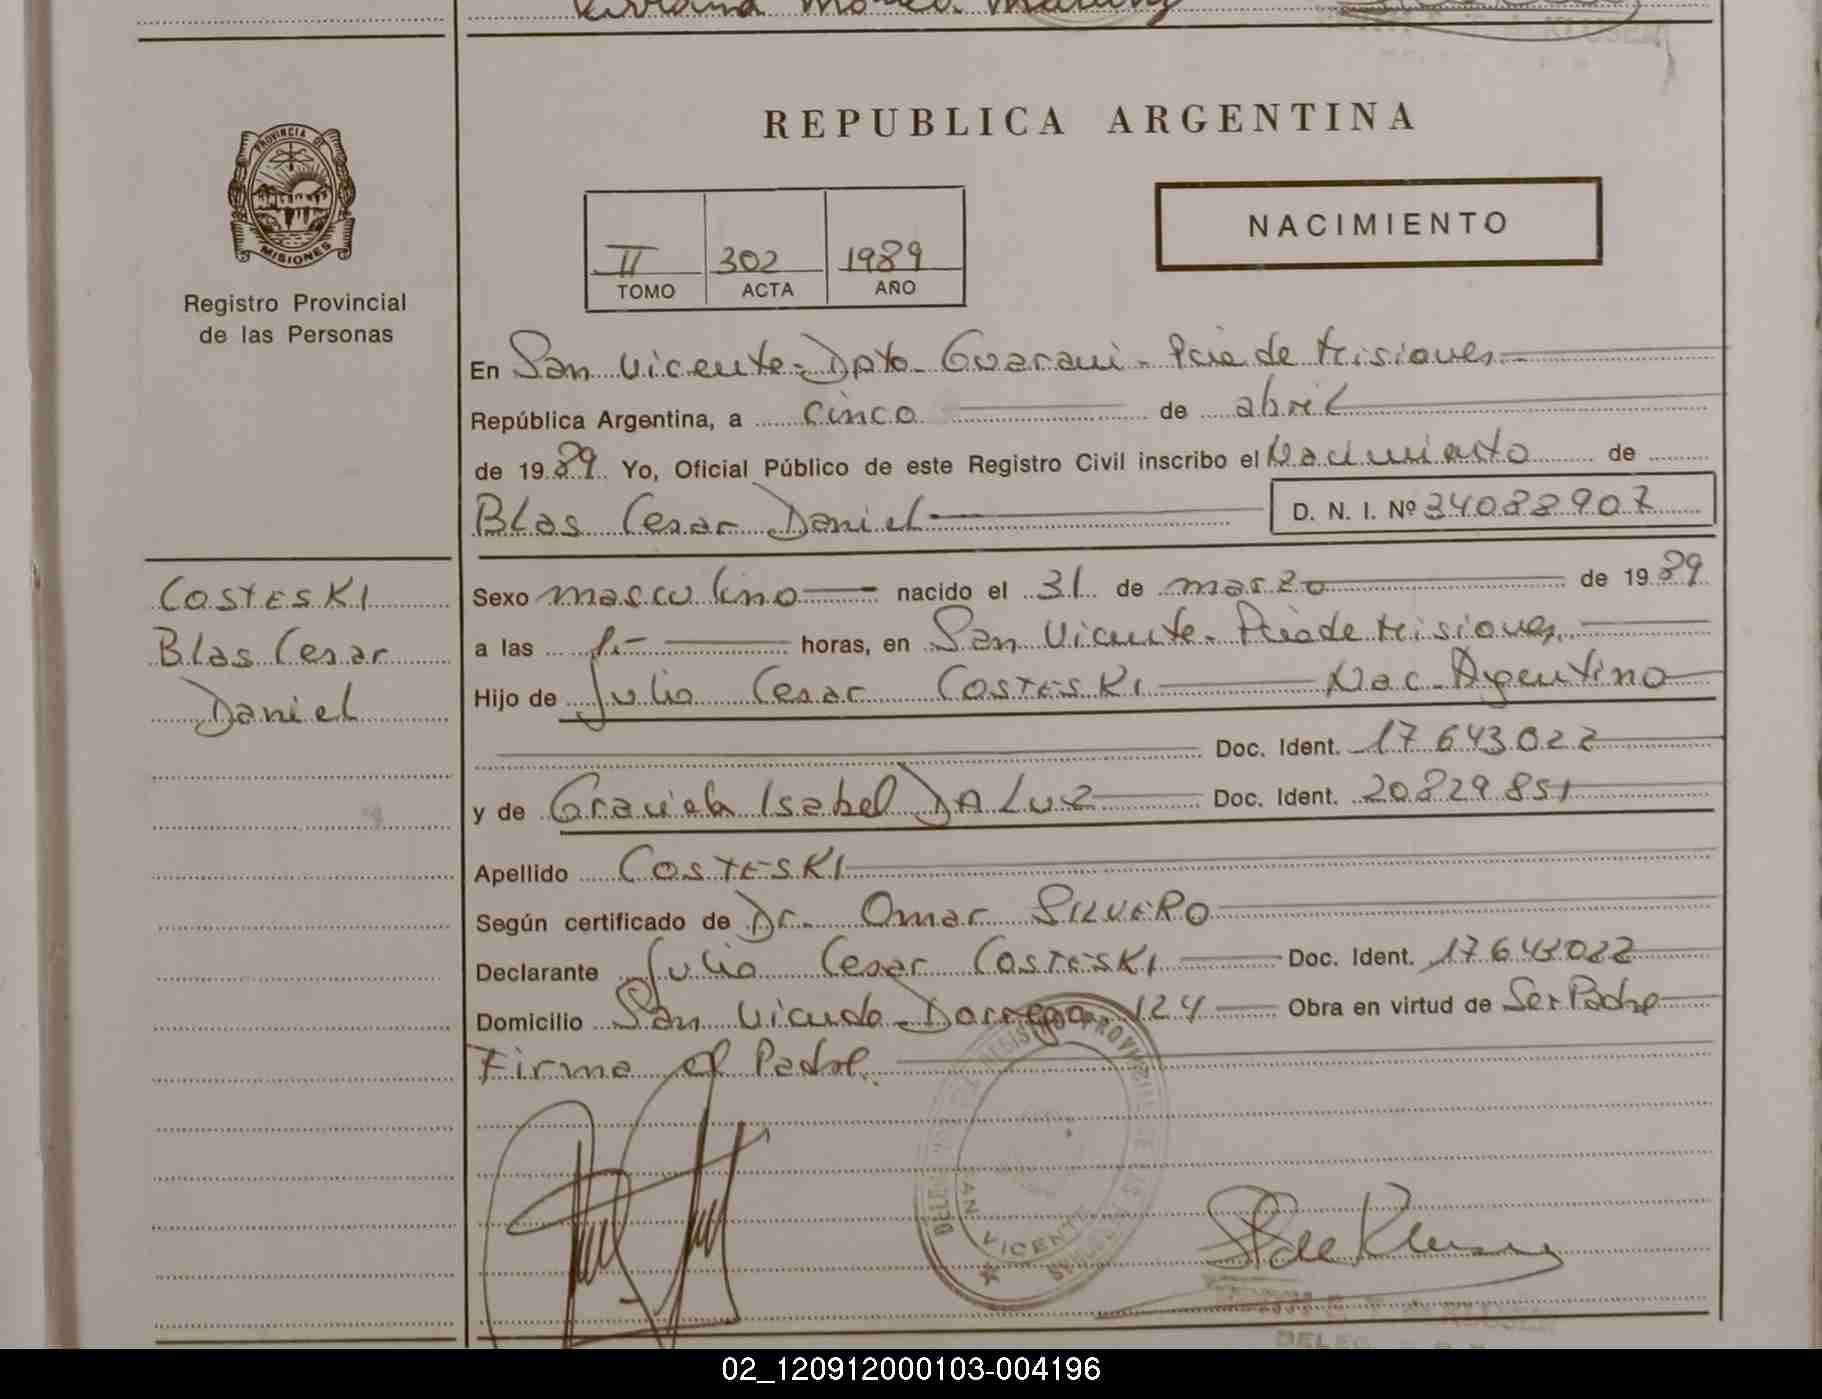 Viviana
PROVINCIA DE
MISIONES
Registro Provincial
de las Personas
REPUBLICA ARGENTINA
II 302 1989
TOMO ACTA AÑO
NACIMIENTO
En San Vicente - Dpto. Guarani - Pcia de Misiones
República Argentina, a cinco de abril
de 1989. Yo, Oficial Público de este Registro Civil inscribo el Nacimiento de
Blas Cesar Daniel D. N. I. Nº 34088907
COSTESKI
Blas Cesar
Daniel
Sexo masculino nacido el 31 de marzo de 1989
a las 1.- horas, en San Vicente - Pcia de Misiones
Hijo de Julio Cesar COSTESKI Nac. Argentino
Doc. Ident. 17643022
y de Graciela Isabel DA LUZ Doc. Ident. 20829851
Apellido COSTESKI
Según certificado de Dr. Omar SILVERO
Declarante Julio Cesar COSTESKI Doc. Ident. 17643022
Domicilio San Vicente - Dorrego 124 Obra en virtud de Ser Padre
Firma el Padre.
SAN VICENTE
02_120912000103-004196